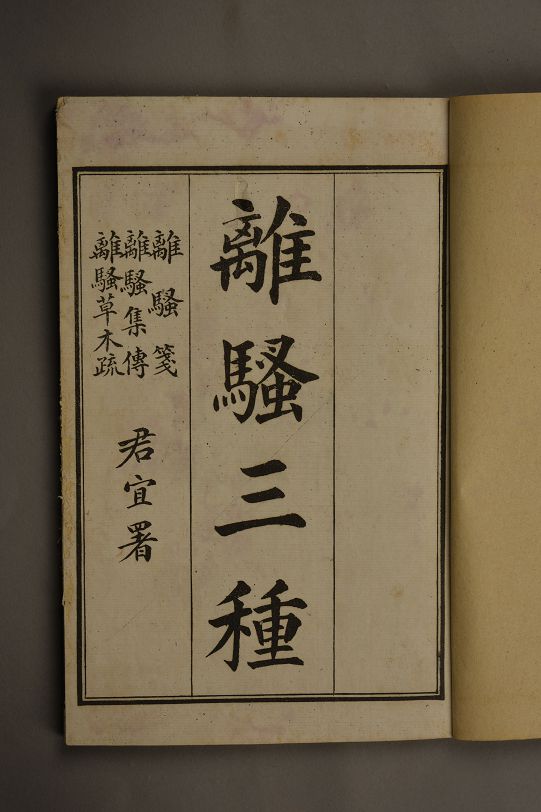 離騷三種
離騷箋
離騷集傳
離騷草木疏
君宜署